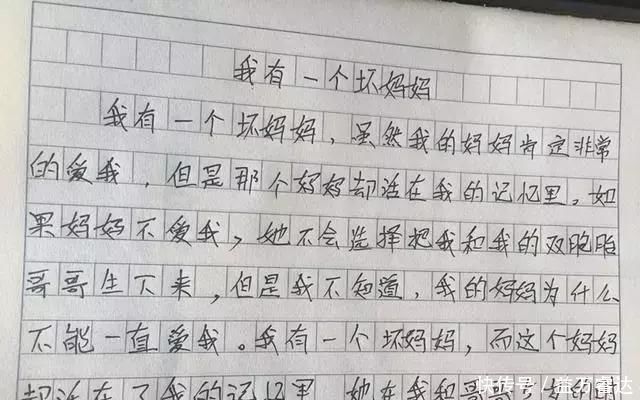 我有一个坏妈妈
我有一个坏妈妈，虽然我的妈妈肯定非常
的爱我，但是那个妈妈却活在我的记忆里。如
果妈妈不爱我，她不会选择把我和我的双胞胎
哥哥生下来，但是我不知道，我的妈妈为什么
不能一直爱我。我有一个坏妈妈，而这个妈妈
却活在了我的记忆里 她在我和哥哥
快传号/益万霍达